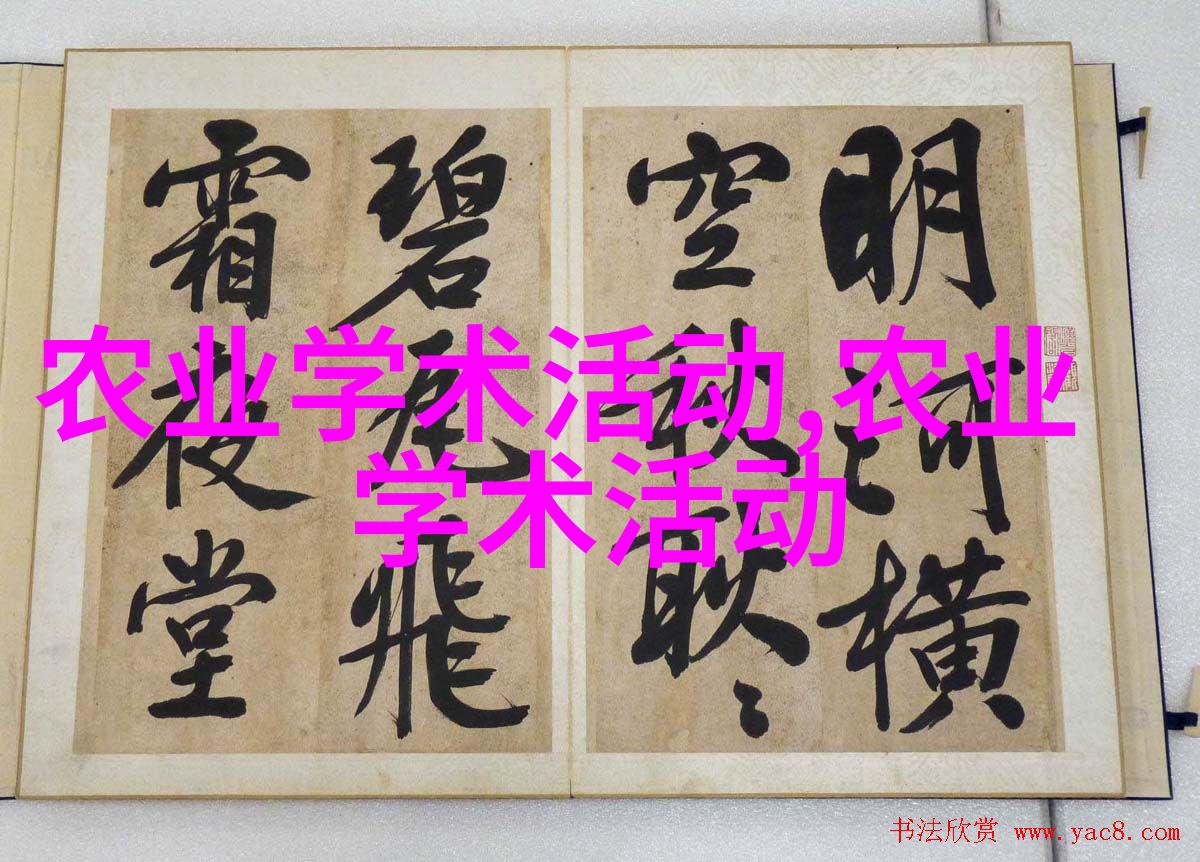 明河橫
空秋耿〻
碧瓦飛
霜夜堂
农业学术活动,农业
学术活动
书法欣赏 www.yac8.com